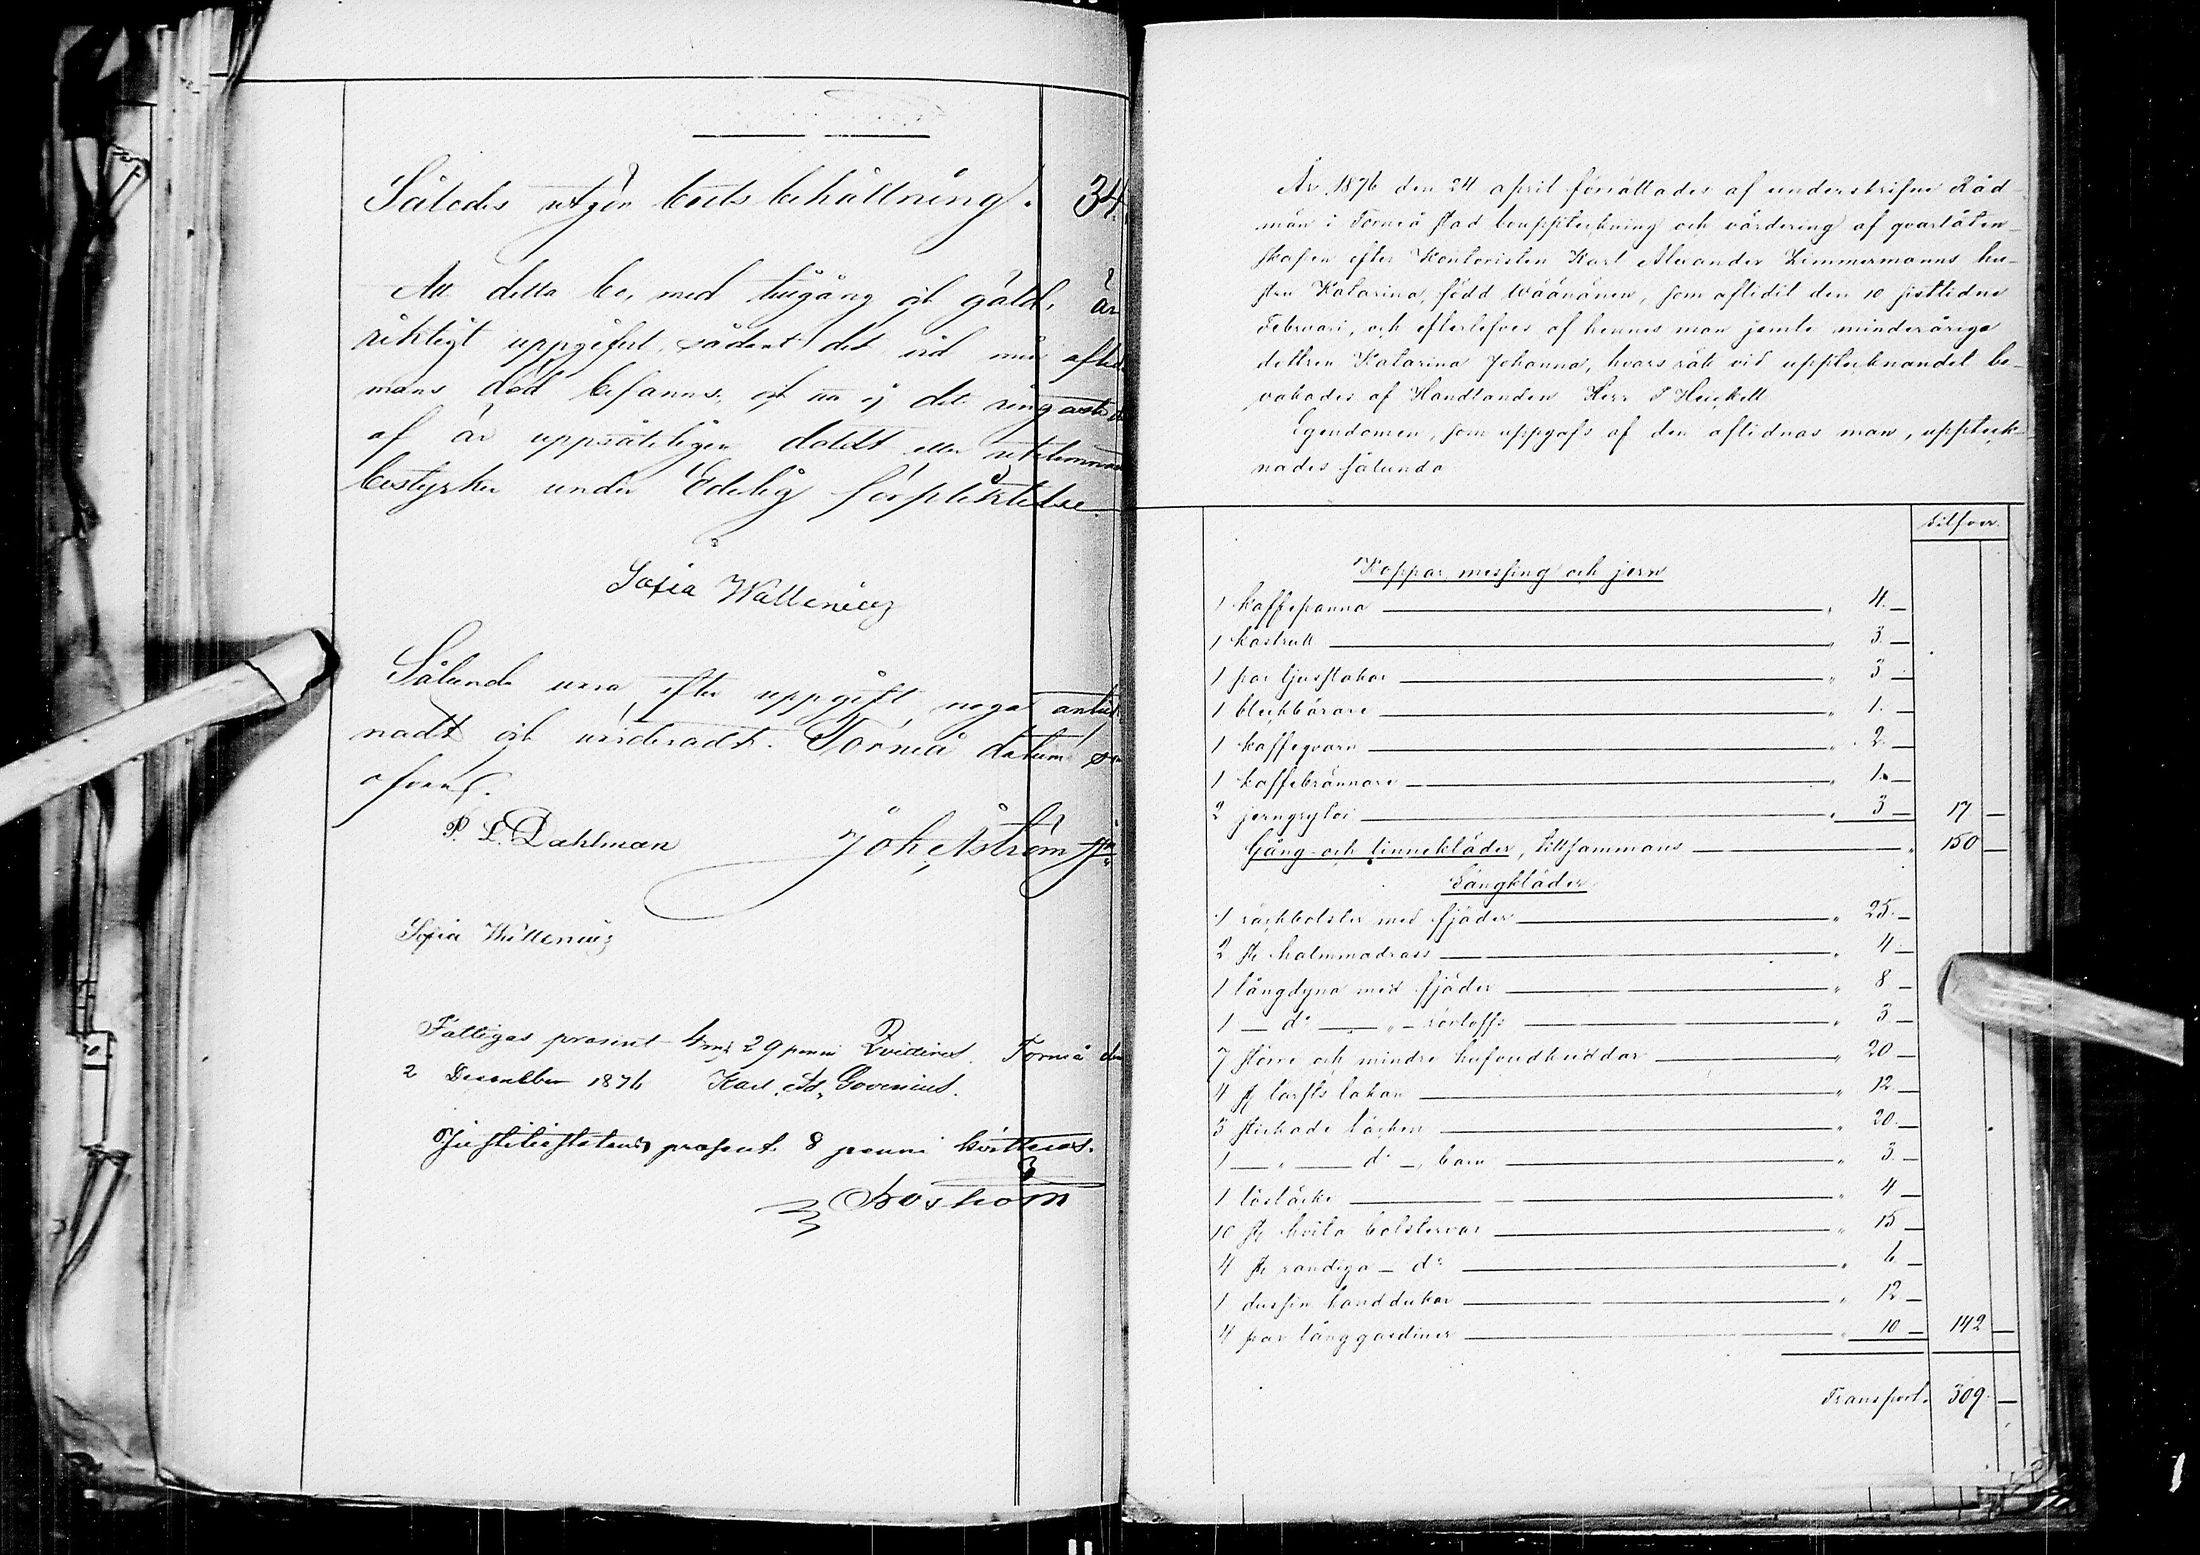 Således utgör boets behållning. 34
Att detta bo, med tillgång och gäld, är
riktigt uppgifvet, sådant det vid min aflid
mans död befanns, och att ej det ringaste der
af är uppsåteligen doldt eller utelemnadt
bestyrker under Edelig förpliktelse.
Sofia Wallenius
Sålunda vara, efter uppgift, noga anteck
nadt och värderadt. Torneå datum som
ofvan.
P. L. Dahlman Joh. Åström
Sofia Wallenius
Fattigas procent 4 mk 29 penni Qvitteras. Torneå den
2 December 1876 Karl Ad. Govenius.
Justitiæstatens procent 8 penni kvitteras.
Boström
År 1876 den 24 april förrättades af underskrifne Råd-
män i Torneå stad bouppteckning och värdering af qvarlåten-
skapen efter Kontoristen Karl Alexander Zimmermanns hu-
stru Katarina, född Wäänänen, som aflidit den 10 sistlidne
Februari, och efterlefves af hennes man jemte minderåriga
dottren Katarina Johanna, hvars rätt vid upptecknandet be-
vakades af Handlanden Herr J Heickell
Egendomen, som uppgafs af den aflidnas man, uppteck-
nades sålunda
Silfver.
Koppar messing och jern
1 kaffepanna " 4. —
1 kastrull " 3. —
1 par ljusstakar " 3 —
1 bleckbärare " 1. —
1 kaffeqvarn " 2. —
1 kaffebrännare " 1. —
2 jerngrytor " 3 — 17 —
Gång- och linnekläder, tillsammans " 150 —
Sängkläder
1 säckbolster med fjäder " 25. —
2 st halmmadrass " 4 —
1 långdyna med fjäder " 8 —
1 — d:o — " — " 3 —
7 större och mindre hufvudkuddar " 20 —
4 st lärfts lakan " 12 —
3 stickade täcken " 20. —
1 — " — d:o —, barn " 3. —
1 löstäcke " 4 —
10 st hvita bolstervar " 15 —
4 st randiga — d:o " 6 —
1 dussin handdukar " 12 —
4 par långgardiner " 10 — 142 —
Transport. 309. —